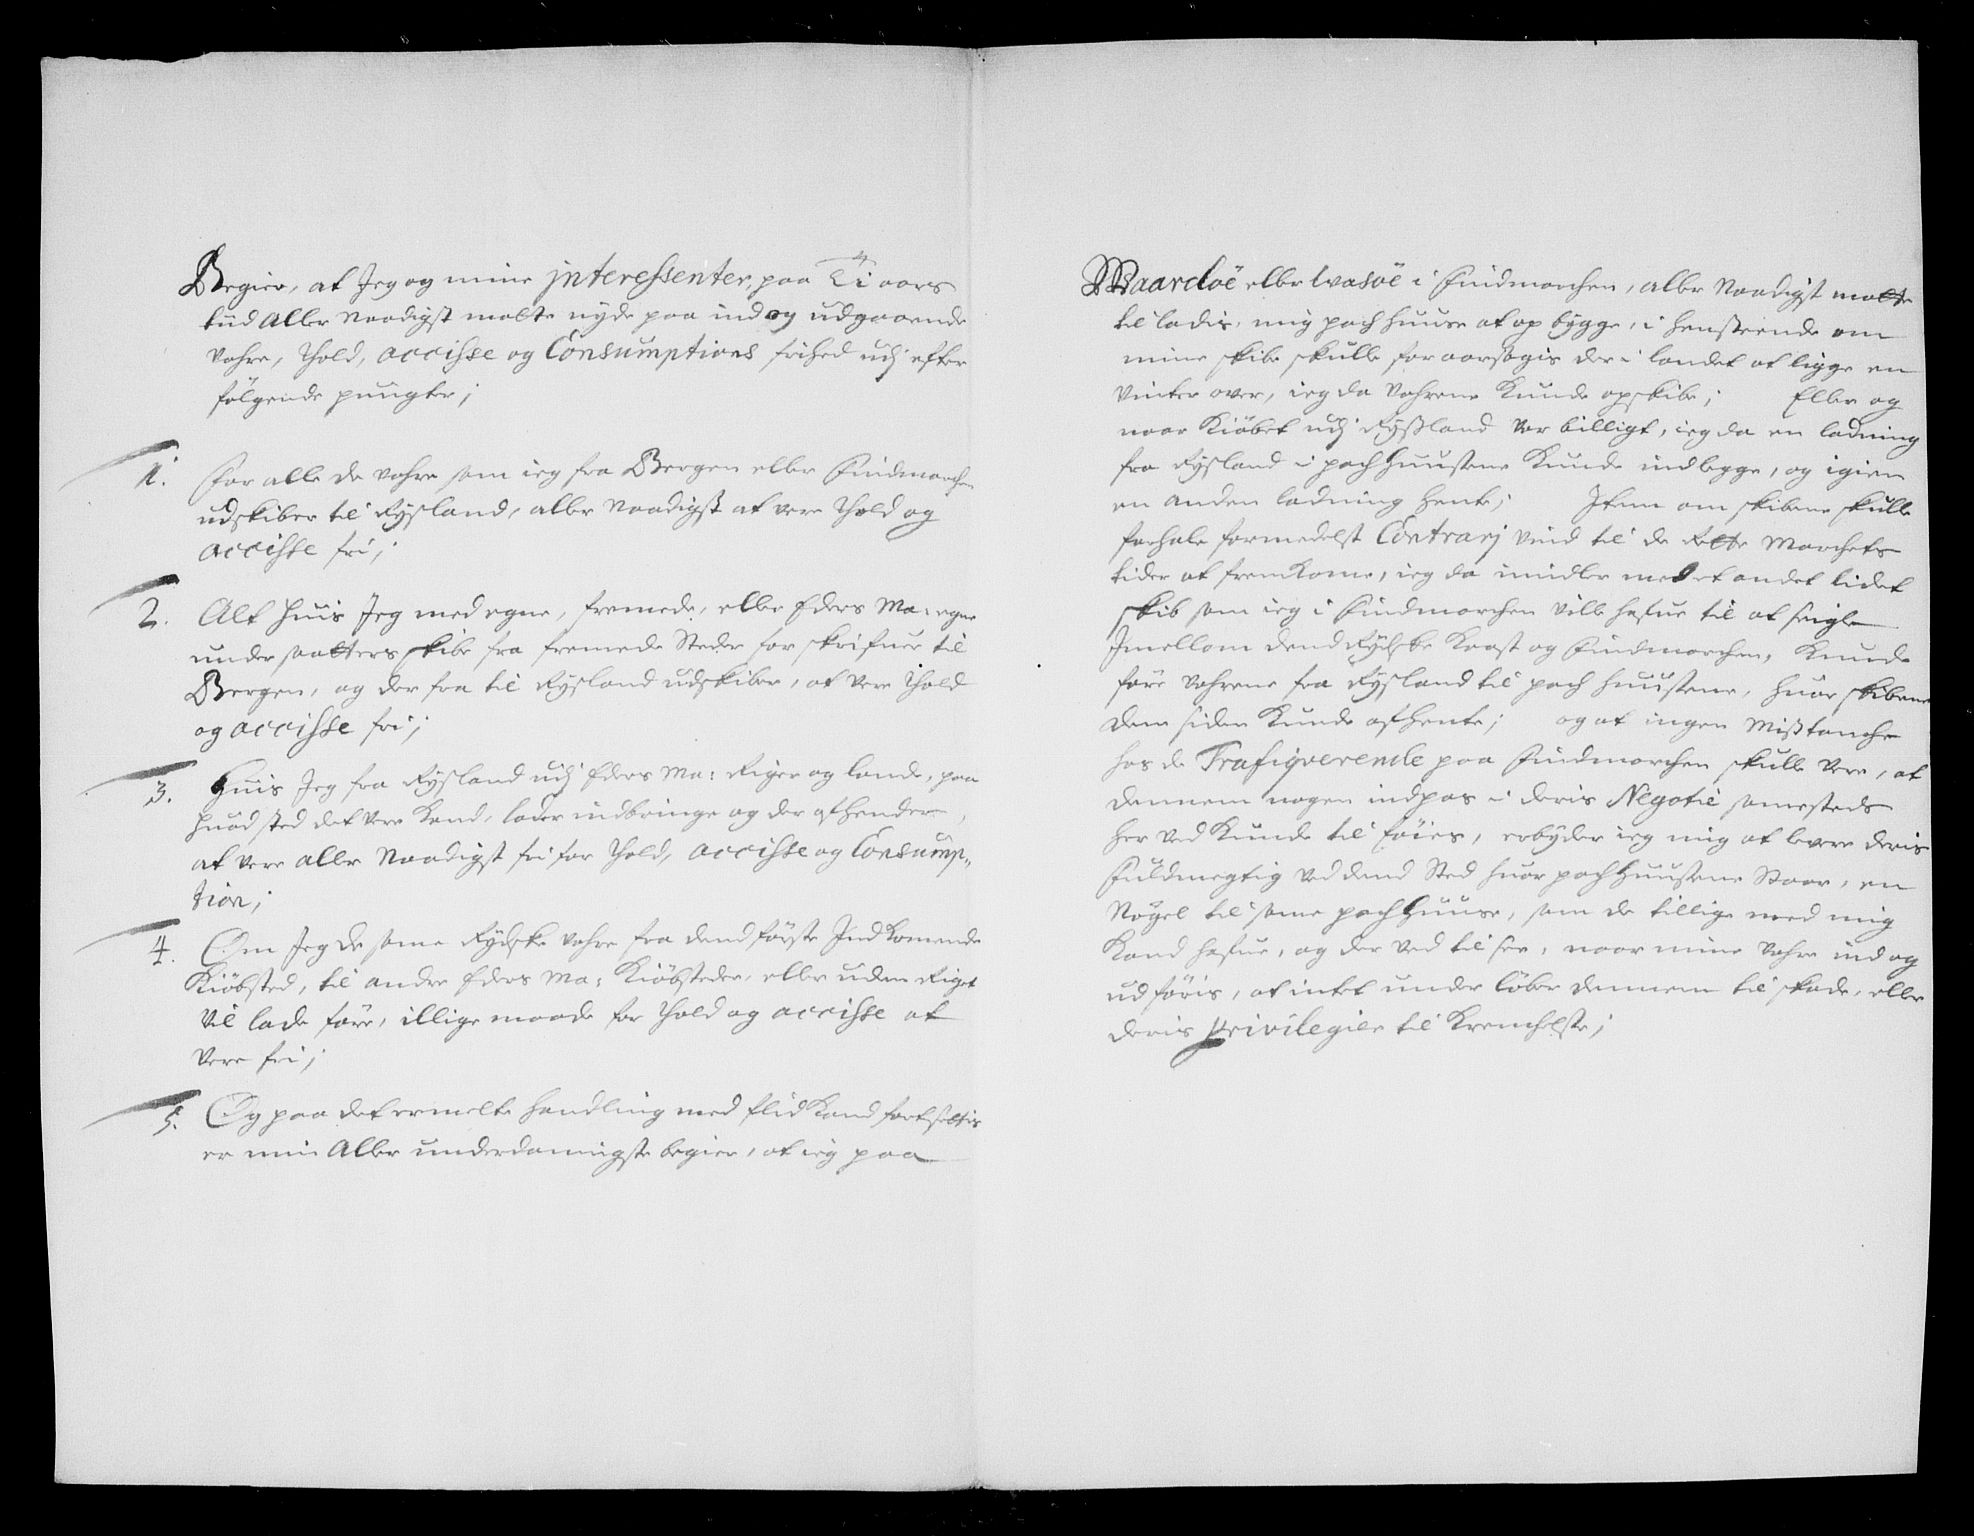 Begier, at Jeg og mine jnteressenter, paa Ti aars
tiid Aller Naadigst motte nyde paa ind og udgaaende
vahre, Thold, accisse og Consumptions frihed udj efter
følgende pungter;
1. For alle de vahre som ieg fra Bergen eller Findmarchen
udskiber til Rysland, aller Naadigst at vere Thold og
accisse fri;
2. Alt huis Jeg med egne, fremede, eller Eders Ma: egne
undersaatters skibe fra fremede Steder forskrifuer til
Bergen, og der fra til Rysland udskiber, at vere Thold
og accisse fri;
3. Huis Jeg fra Rysland udj Eders Ma: Riger og lande, paa
huad sted det vere kand, lader indbringe og der afhender,
at vere aller Naadigst fri for Thold, accisse og Consump„
tion;
4. Om Jeg de same Rydske vahre fra dend første Indkomende
Kiøbsted, til andre Eders Ma: Kiøbsteder, eller uden Riget
vil lade føre, illige maade for Thold og accisse at
vere fri;
5. Og paa det ermelte handling med flid kand fortsettis
er min Aller underdannigste begier, at ieg paa
Waardøe eller Wasøe i Findmarchen, aller Naadigst motte
tilladis, mig pachhuuse at opbygge, i henseende om
mine skibe skulle foraarsagis der i landet at ligge en
vinter over, ieg da vahrene kunde opskibe; Eller og
naar Kiøbet udj Rysland var billigt, ieg da en ladning
fra Rysland i pachhuusene kunde indlegge, og igien
en anden ladning hente; Item om skibene skulle
forhale formedelst Contrarj vind til de Rette Marchets
tider at fremkome, ieg da imidler med et andet lidet
skib som ieg i Findmarchen ville hafue til at seigle
Imellom dend Rydske kaast og Findmarchen, kunde
føre vahrene fra Rysland til pachhuusene, huor skibene
dem siden kunde afhente; og at ingen Mistanche
hos de Trafiqverende paa Findmarchen skulle vere, at
dennem nogen indpas i deris Negotie samesteds
her ved kunde tilføies, erbyder ieg mig at levere deris
Fuldmegtig ved dend Sted huor pachhuusene Staar, en
Nøgel til same pachhuuse, som de tillige med mig
kand hafue, og der ved til see, naar mine vahre ind og
udføris, at intet under løber dennem til skade, eller
deris privilegier til krenchelse;